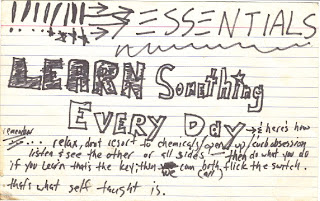 ESSENTIALS
LEARN Something
EVERY DAY → & here's how
remember
relax, dont resort to chemicals, open up / curb obsession
listen & see the other or all sides then do what you do
if you learn that's the key; then we can both flick the switch.
(all)
that's what self taught is.